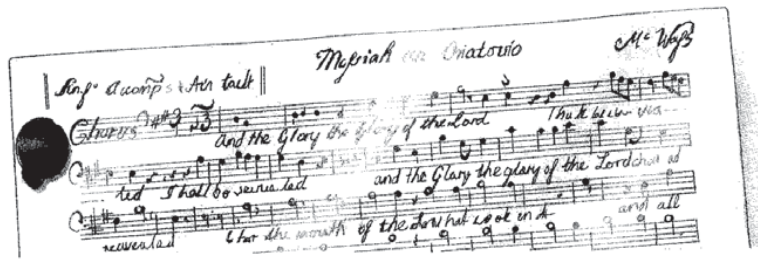 Messiah an Oratorio
Mr Wass
Air tacit
Chorus
And the Glory the Glory of the Lord shall be revea
led shall be revealed and the Glory the glory of the Lord shall be
revealed the mouth of the Lord hath spoken it and all